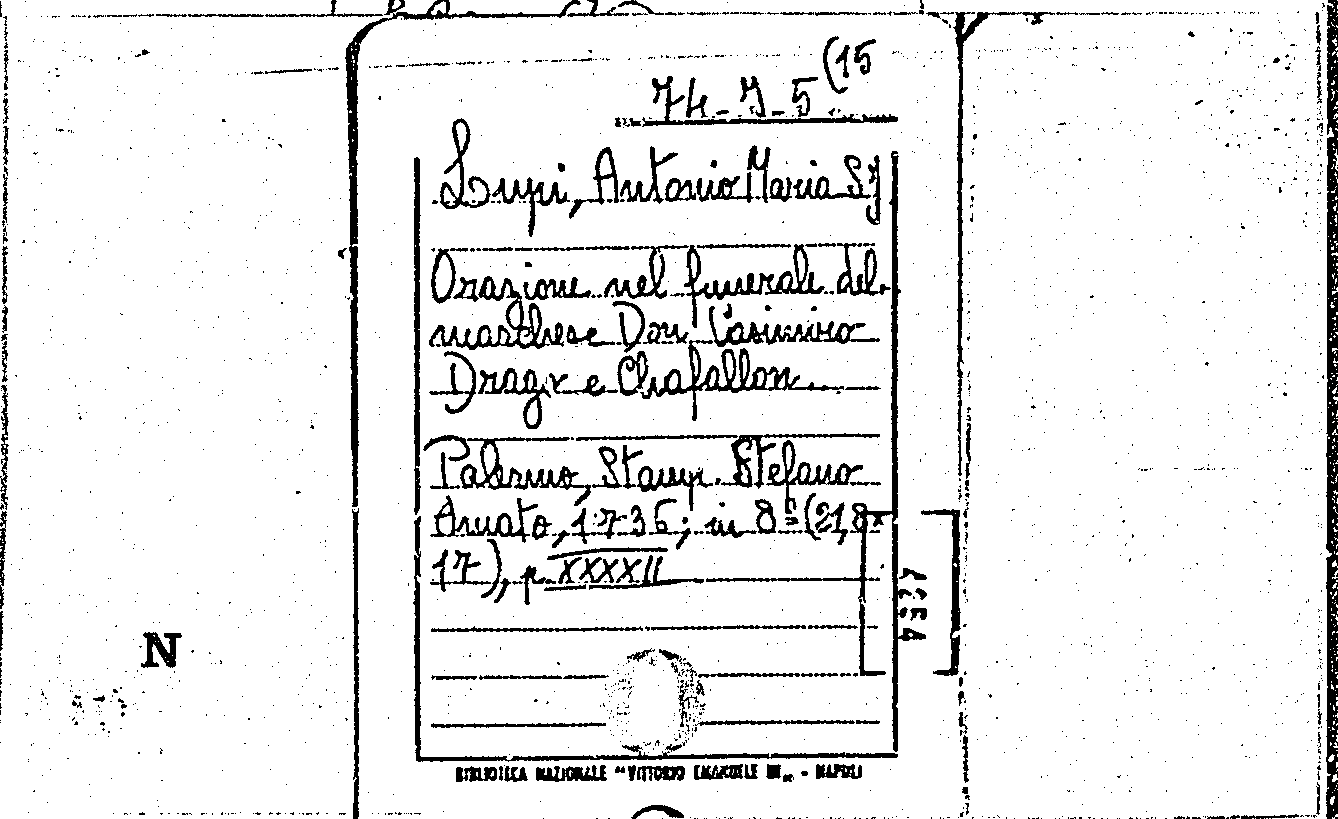 74-J-5 (15
Lupi, Antonio Maria SJ
Orazione nel funerale del
marchese Don Casimiro
Drago e Chafallon...
Palermo, Stamp. Stefano
Amato, 1736; in 8º (21,8x
17), p. XXXXII
N
BIBLIOTECA NAZIONALE "VITTORIO EMANUELE III" - NAPOLI